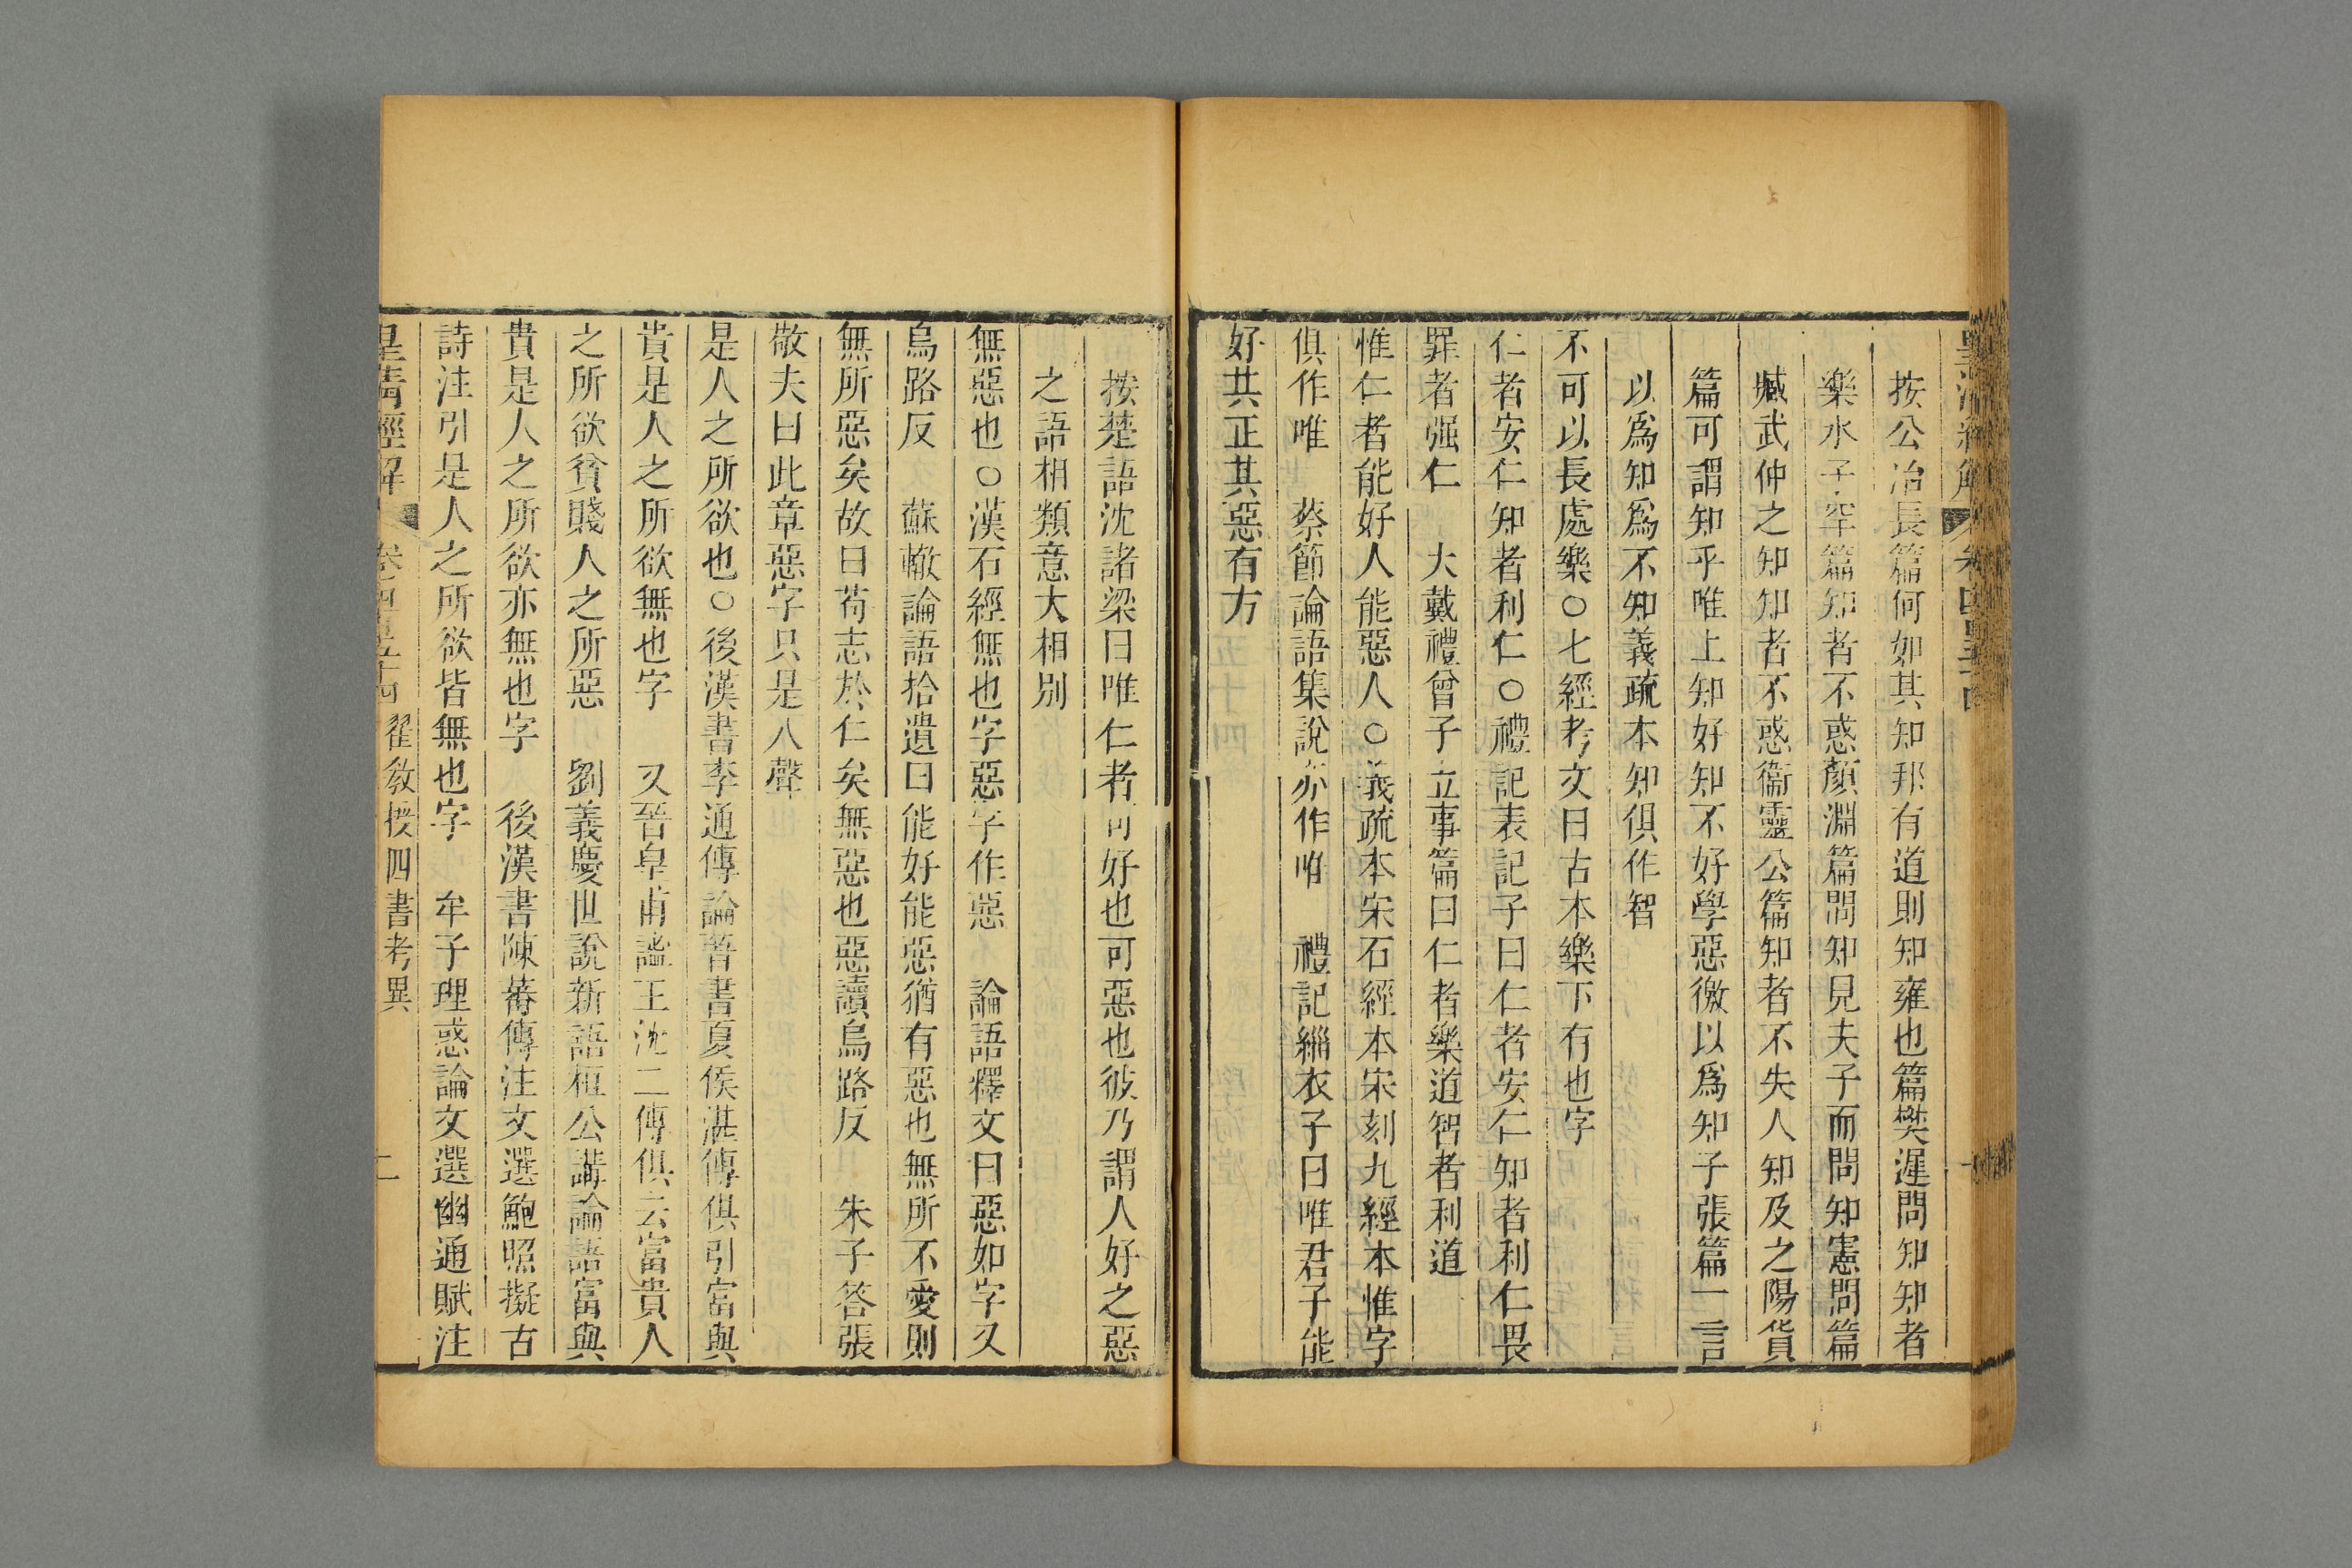 按公冶長篇何如其知邦有道則知雍也篇樊遲問知知者
樂水子罕篇知者不惑顏淵篇問知見夫子而問知憲問篇
臧武仲之知知者不惑衞靈公篇知者不失人知及之陽貨
篇可謂知乎唯上知好知不好學惡徼以爲知子張篇一言
以爲知爲不知義疏本知俱作智
不可以長處樂○七經考文曰古本樂下有也字
仁者安仁知者利仁○禮記表記子曰仁者安仁知者利仁畏
罪者强仁　大戴禮曾子立事篇曰仁者樂道智者利道
惟仁者能好人能惡人○義疏本宋石經本宋刻九經本惟字
俱作唯　蔡節論語集說亦作唯　禮記緇衣子曰唯君子能
好其正其惡有方
按楚語沈諸梁曰唯仁者可好也可惡也彼乃謂人好之惡
之語相類意大相別
無惡也○漢石經無也字惡字作惡　論語釋文曰惡如字又
烏路反　蘇轍論語拾遺曰能好能惡猶有惡也無所不愛則
無所惡矣故曰苟志於仁矣無惡也惡讀烏路反　朱子答張
敬夫曰此章惡字只是入聲
是人之所欲也○後漢書李通傳論晉書夏侯湛傳俱引富與
貴是人之所欲無也字　又晉皇甫謐王沈二傳俱云富貴人
之所欲貧賤人之所惡　劉義慶世說新語桓公講論語富與
貴是人之所欲亦無也字　後漢書陳蕃傳注文選鮑照擬古
詩注引是人之所欲皆無也字　牟子理惑論文選幽通賦注
皇清經解　卷四百五十四　翟敎授四書考異　二